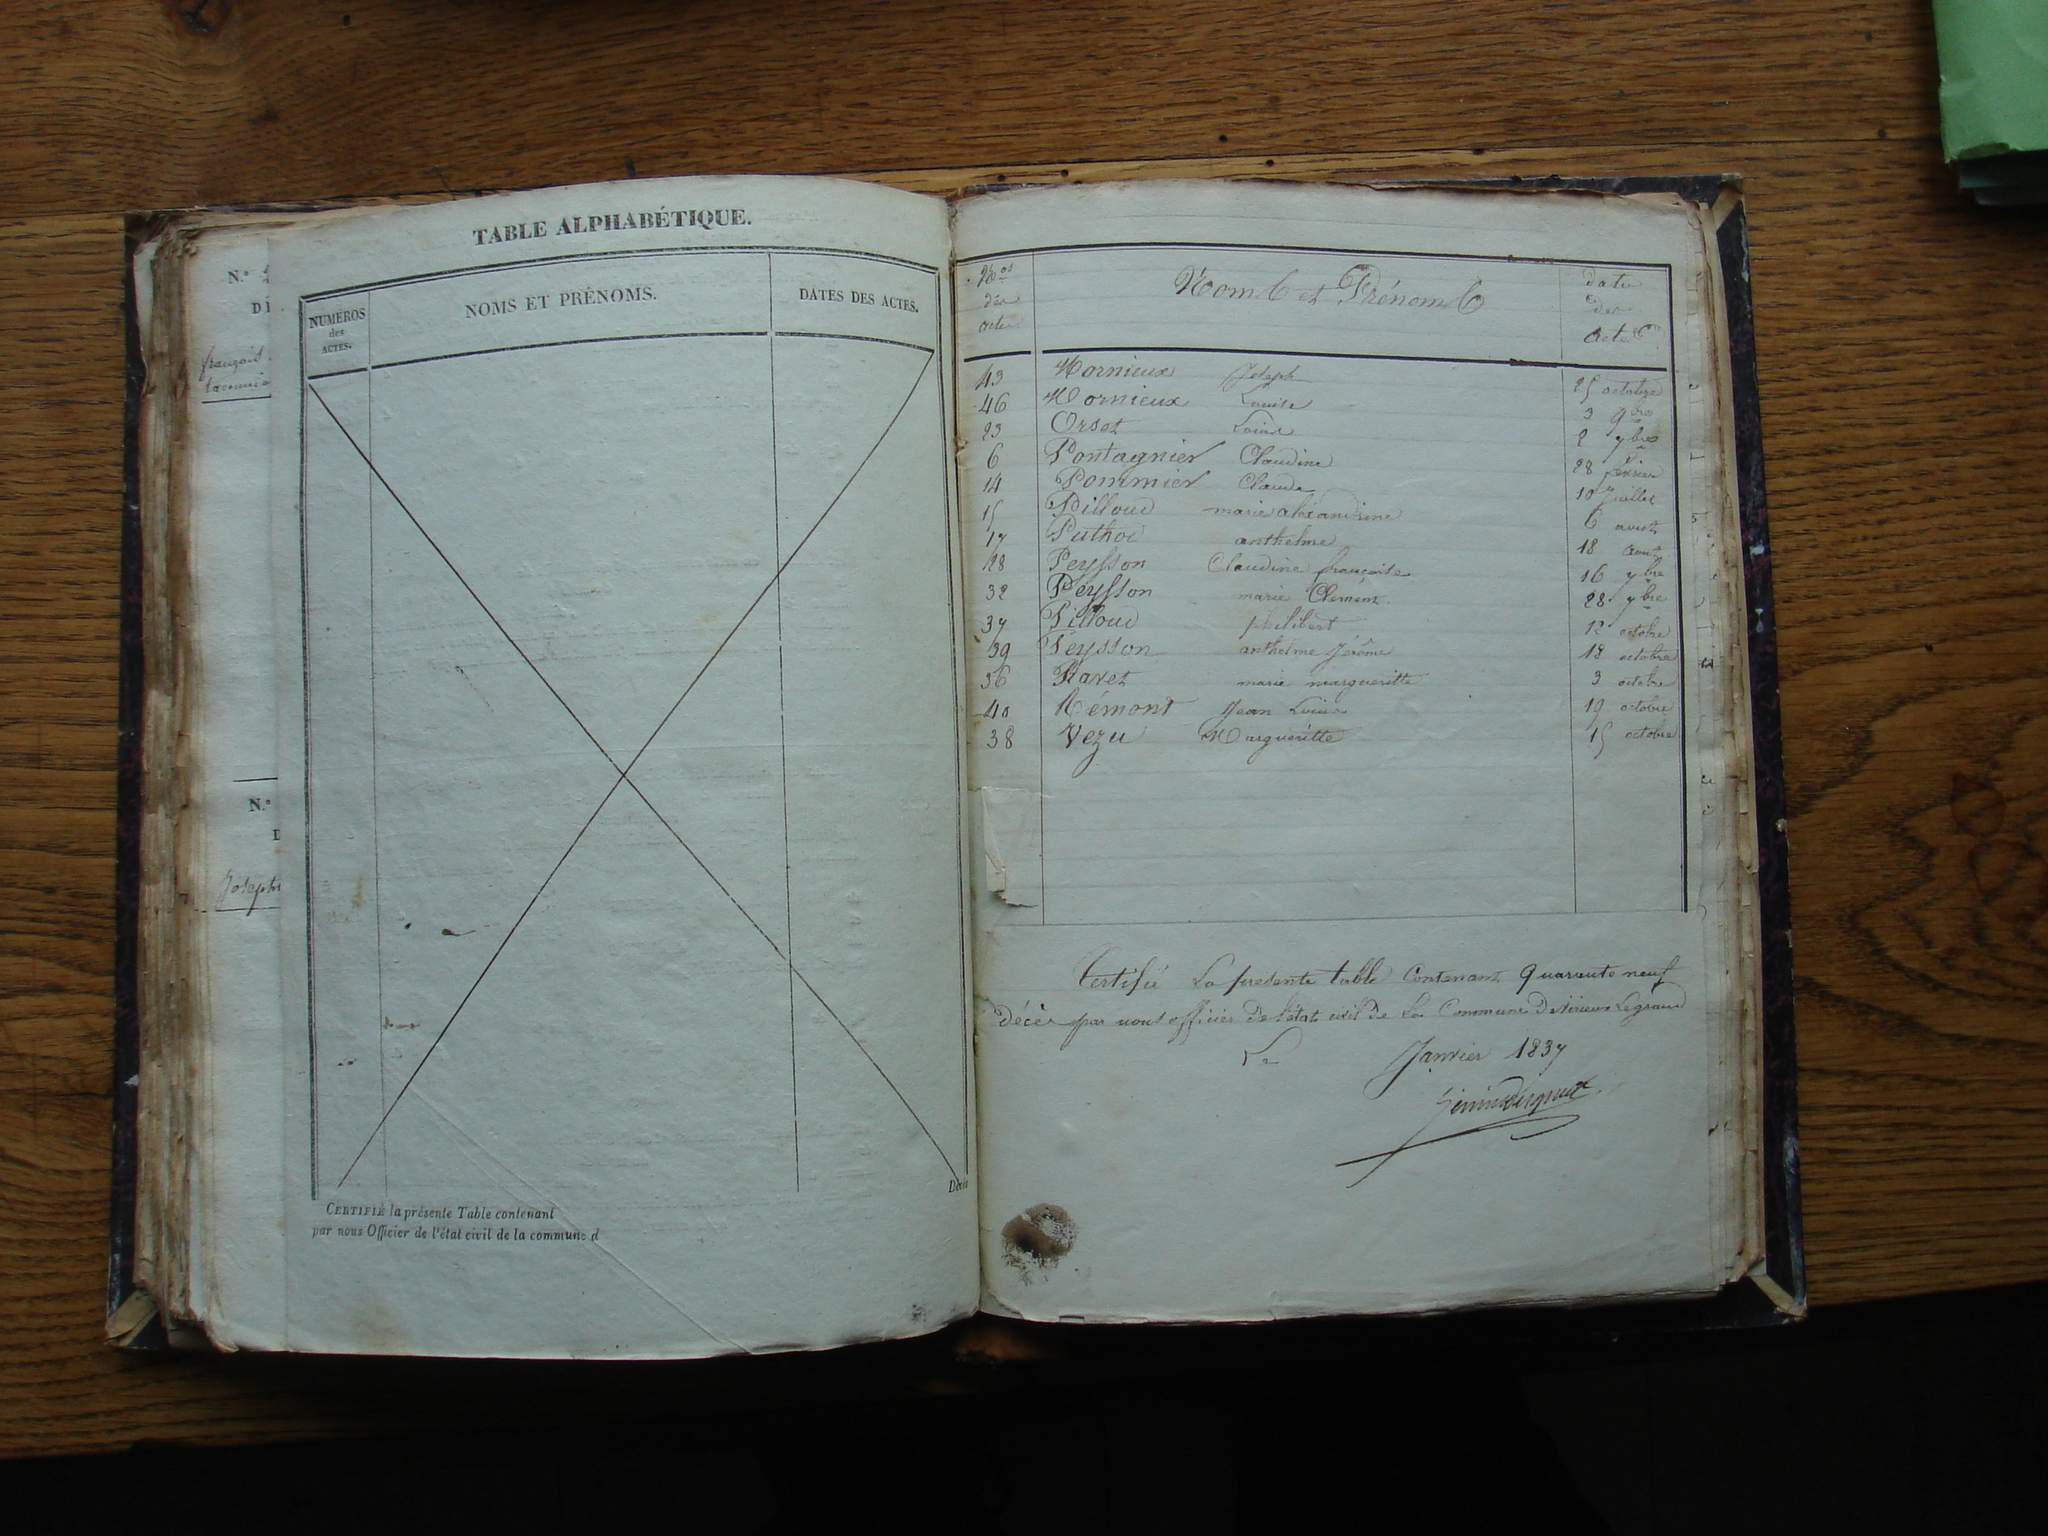 N.º
DÉ
français
N.º
D
Joseph
TABLE ALPHABÉTIQUE.
NUMÉROS des ACTES.
NOMS ET PRÉNOMS.
DATES DES ACTES.
CERTIFIÉ la présente Table contenant
Décès
par nous Officier de l'état civil de la commune d
Nos des actes
Noms et Prénoms
date des actes
43 Mornieux Joseph 25 octobre
46 Mornieux Louise 3 9bre
23 Orset Louise 2 7bre
6 Pontagnier Claudine 28 février
14 Pommier Claude 10 Juillet
15 Pilloud marie alexandrine 6 aoust
17 Puthod anthelme 18 aout
28 Peysson Claudine françoise 16 7bre
32 Peysson marie Clémens 28 7bre
37 Pilloud philibert 12 octobre
39 Peysson anthelme Jérôme 18 octobre
36 Ravet marie margueritte 3 octobre
40 Rémont Jean Louis 19 octobre
38 Vezu Margueritte 15 octobre
Certifié La presente table Contenant Quarante neuf
décès par nous officier de l'état civil de La Commune De Virieu Legrand
Le Janvier 1837